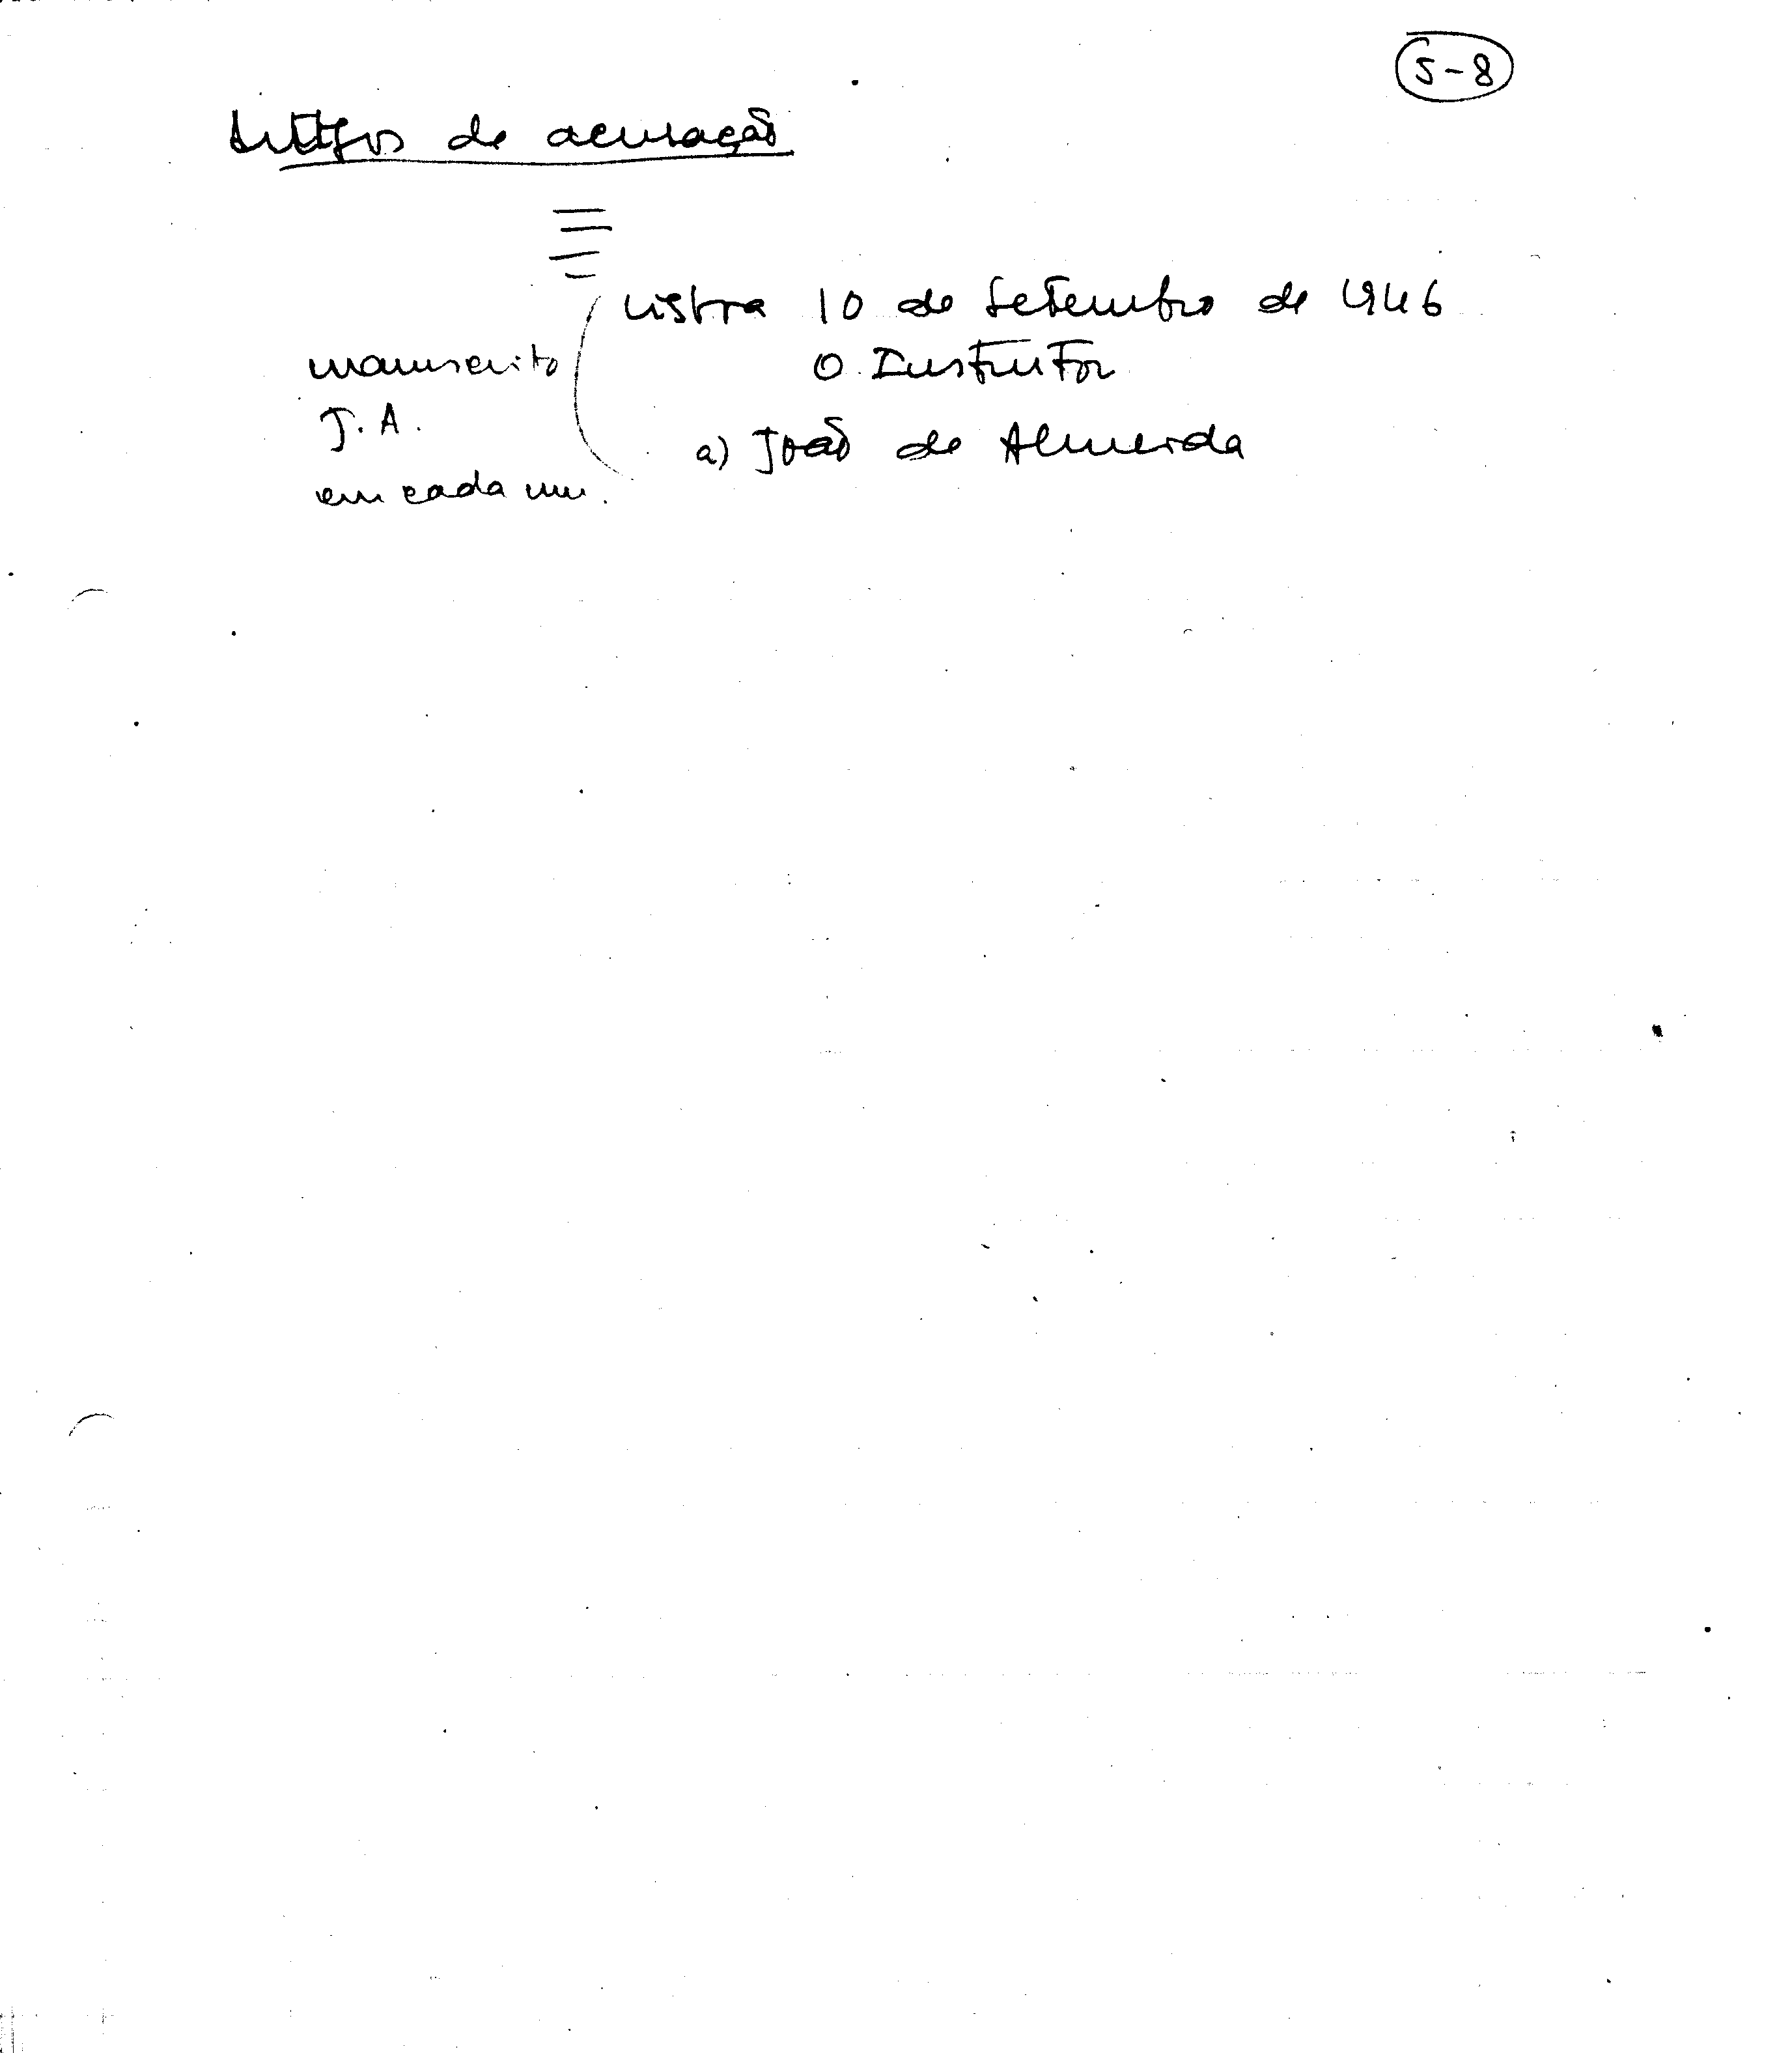 5-8
Artigos de acusação
Lisboa 10 de Setembro de 1946
manuscrito O Instrutor
J. A. a) João de Almeida
em cada um.